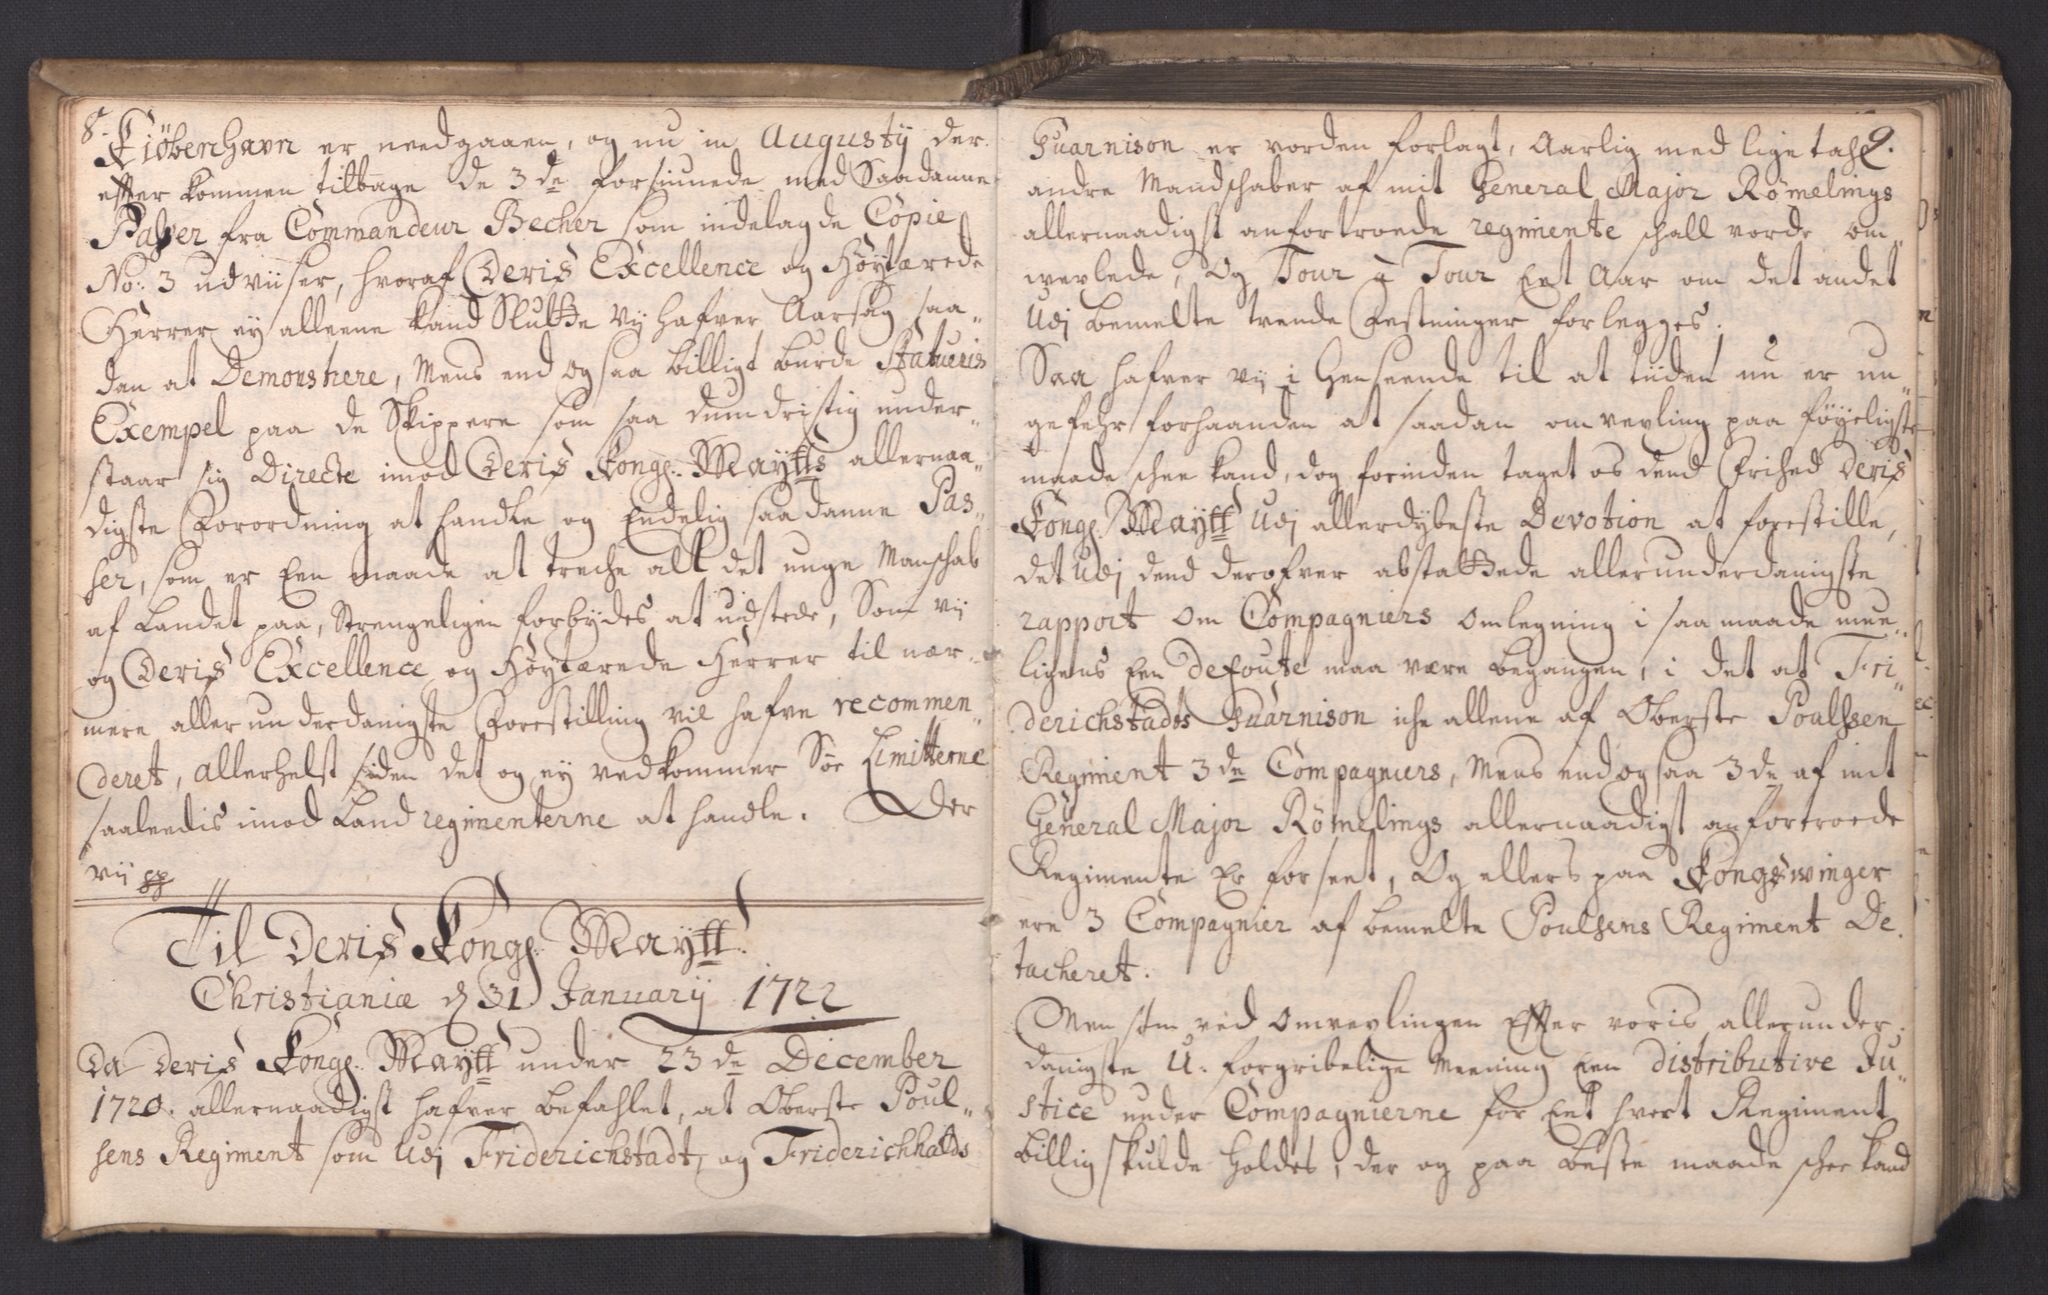 8.
Kiöbenhavn er needgaaen, og nu in Augustÿ der
effter kommen tilbage de 3de forsiunede med Saadanne
Passer fra Commandeur Becher som indelagde Copie
No: 3 udviiser, hvoraf Deris Excellence og Höytærede
Herrer eÿ alleene kand Slutte vÿ hafver Aarsag saa„
dan at Demonstrere, Mens end og saa billigt burde Statueris
Exempel paa de Skippere som saa dumdristig under„
staar sig Directe imod Deris Kongl: Maÿtts allernaa„
digste Forordning at handle og Endelig saadanne Pas„
ser, som er Een maade at treche alt det unge Manschab
af Landet paa, Strengeligen forbÿdes at udstede, Som vÿ
og Deris Excellence og Höytærede Herrer til nær„
mere allerunderdanigste Forestilling vil hafve recommen„
deret, allerhelst siden det og eÿ vedkommer Söe Limitterne
saaleedis imod Landregimenterne at handle. Der
vii pp
Til Deris Kongl: Maÿtt:
Christianiæ d 31 Januarÿ 1722
Da Deris Kongl: Maÿtt under 23de December
1720. allernaadigst hafver befahlet, at Oberste Poul„
sens Regiment som Udj Friderichstadt, og Friderichhalds
9.
Guarnison er vorden forlagt, Aarlig med lige tahl
andre Mandschaber af mit General Major Römelings
allernaadigst anfortroede regimente schall vorde om„
wexlede, Og Tour à Tour Eet Aar om det andet
Udj bemelte trende Festninger forlegges.
Saa hafver vÿ i Henseende til at tiiden nu er un„
gefehr forhaanden at saadan omvexling paa föyeligste
maade schee kand, dog forinden taget os dend Frihed Deris
Kongl: Maÿtt Udj allerdÿbeste Devotion at forestille,
det Udj dend derofver abstattede allerunderdanigste
rapport om Compagniers omlegning i saa maade mue„
ligens Een defoute maa være begangen, i det at Fri„
derichstadts Guarnison iche allene af Oberste Poulssen
Regiment 3de Compagniers, Mens end og saa 3de af mit
General Major Römelings allernaadigst anfortroede
Regimente Er forseet, Og ellers paa Kongswinger
ere 3 Compagnier af bemelte Poulsens Regiment De„
tacheret.
Men som ved omvexlingen Effter voris allerunder„
danigste U-forgribelige Meening Een distributive Ju„
stice under Compagnierne for Eet hvert Regiment
billig skulde holdes, der og paa beste maade schee kand